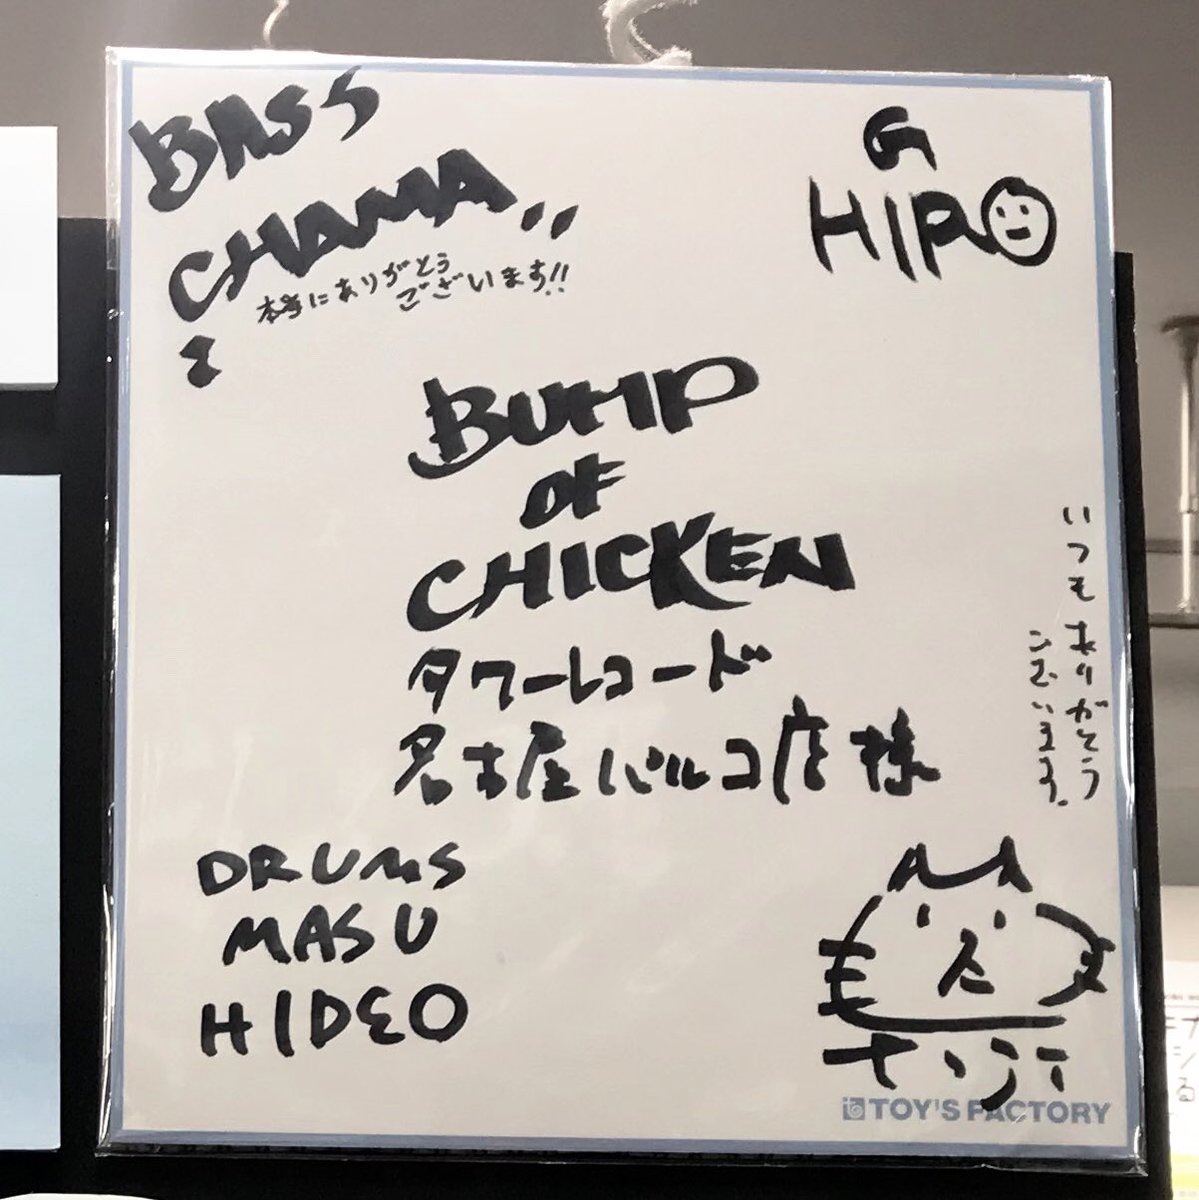 BASS
CHAMA
本当にありがとう
ございます!!
G
HIRO
BUMP
OF
CHICKEN
タワーレコード
名古屋パルコ店様
いつもありがとう
ございます.
DRUMS
MASU
HIDEO
TOY'S FACTORY